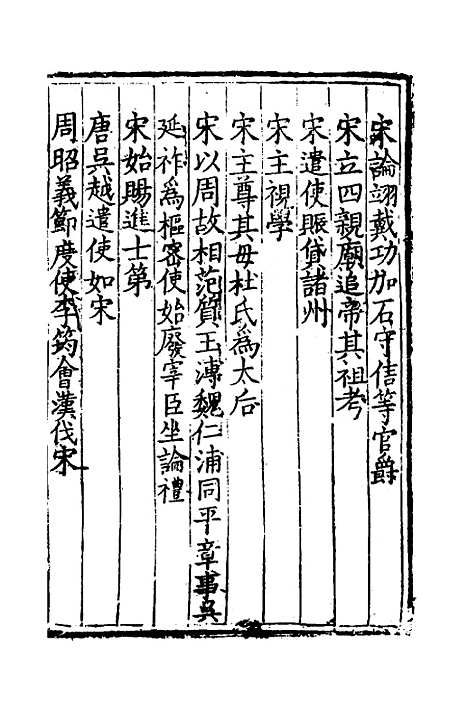 宋論翊戴功加石守信等官爵
宋立四親廟追帝其祖考
宋遣使賑貸諸州
宋主視學
宋主尊其母杜氏爲太后
宋以周故相范質王溥魏仁浦同平章事吳
延祚爲樞密使始廢宰臣坐論禮
宋始賜進士第
唐吳越遣使如宋
周昭義節度使李筠會漢伐宋